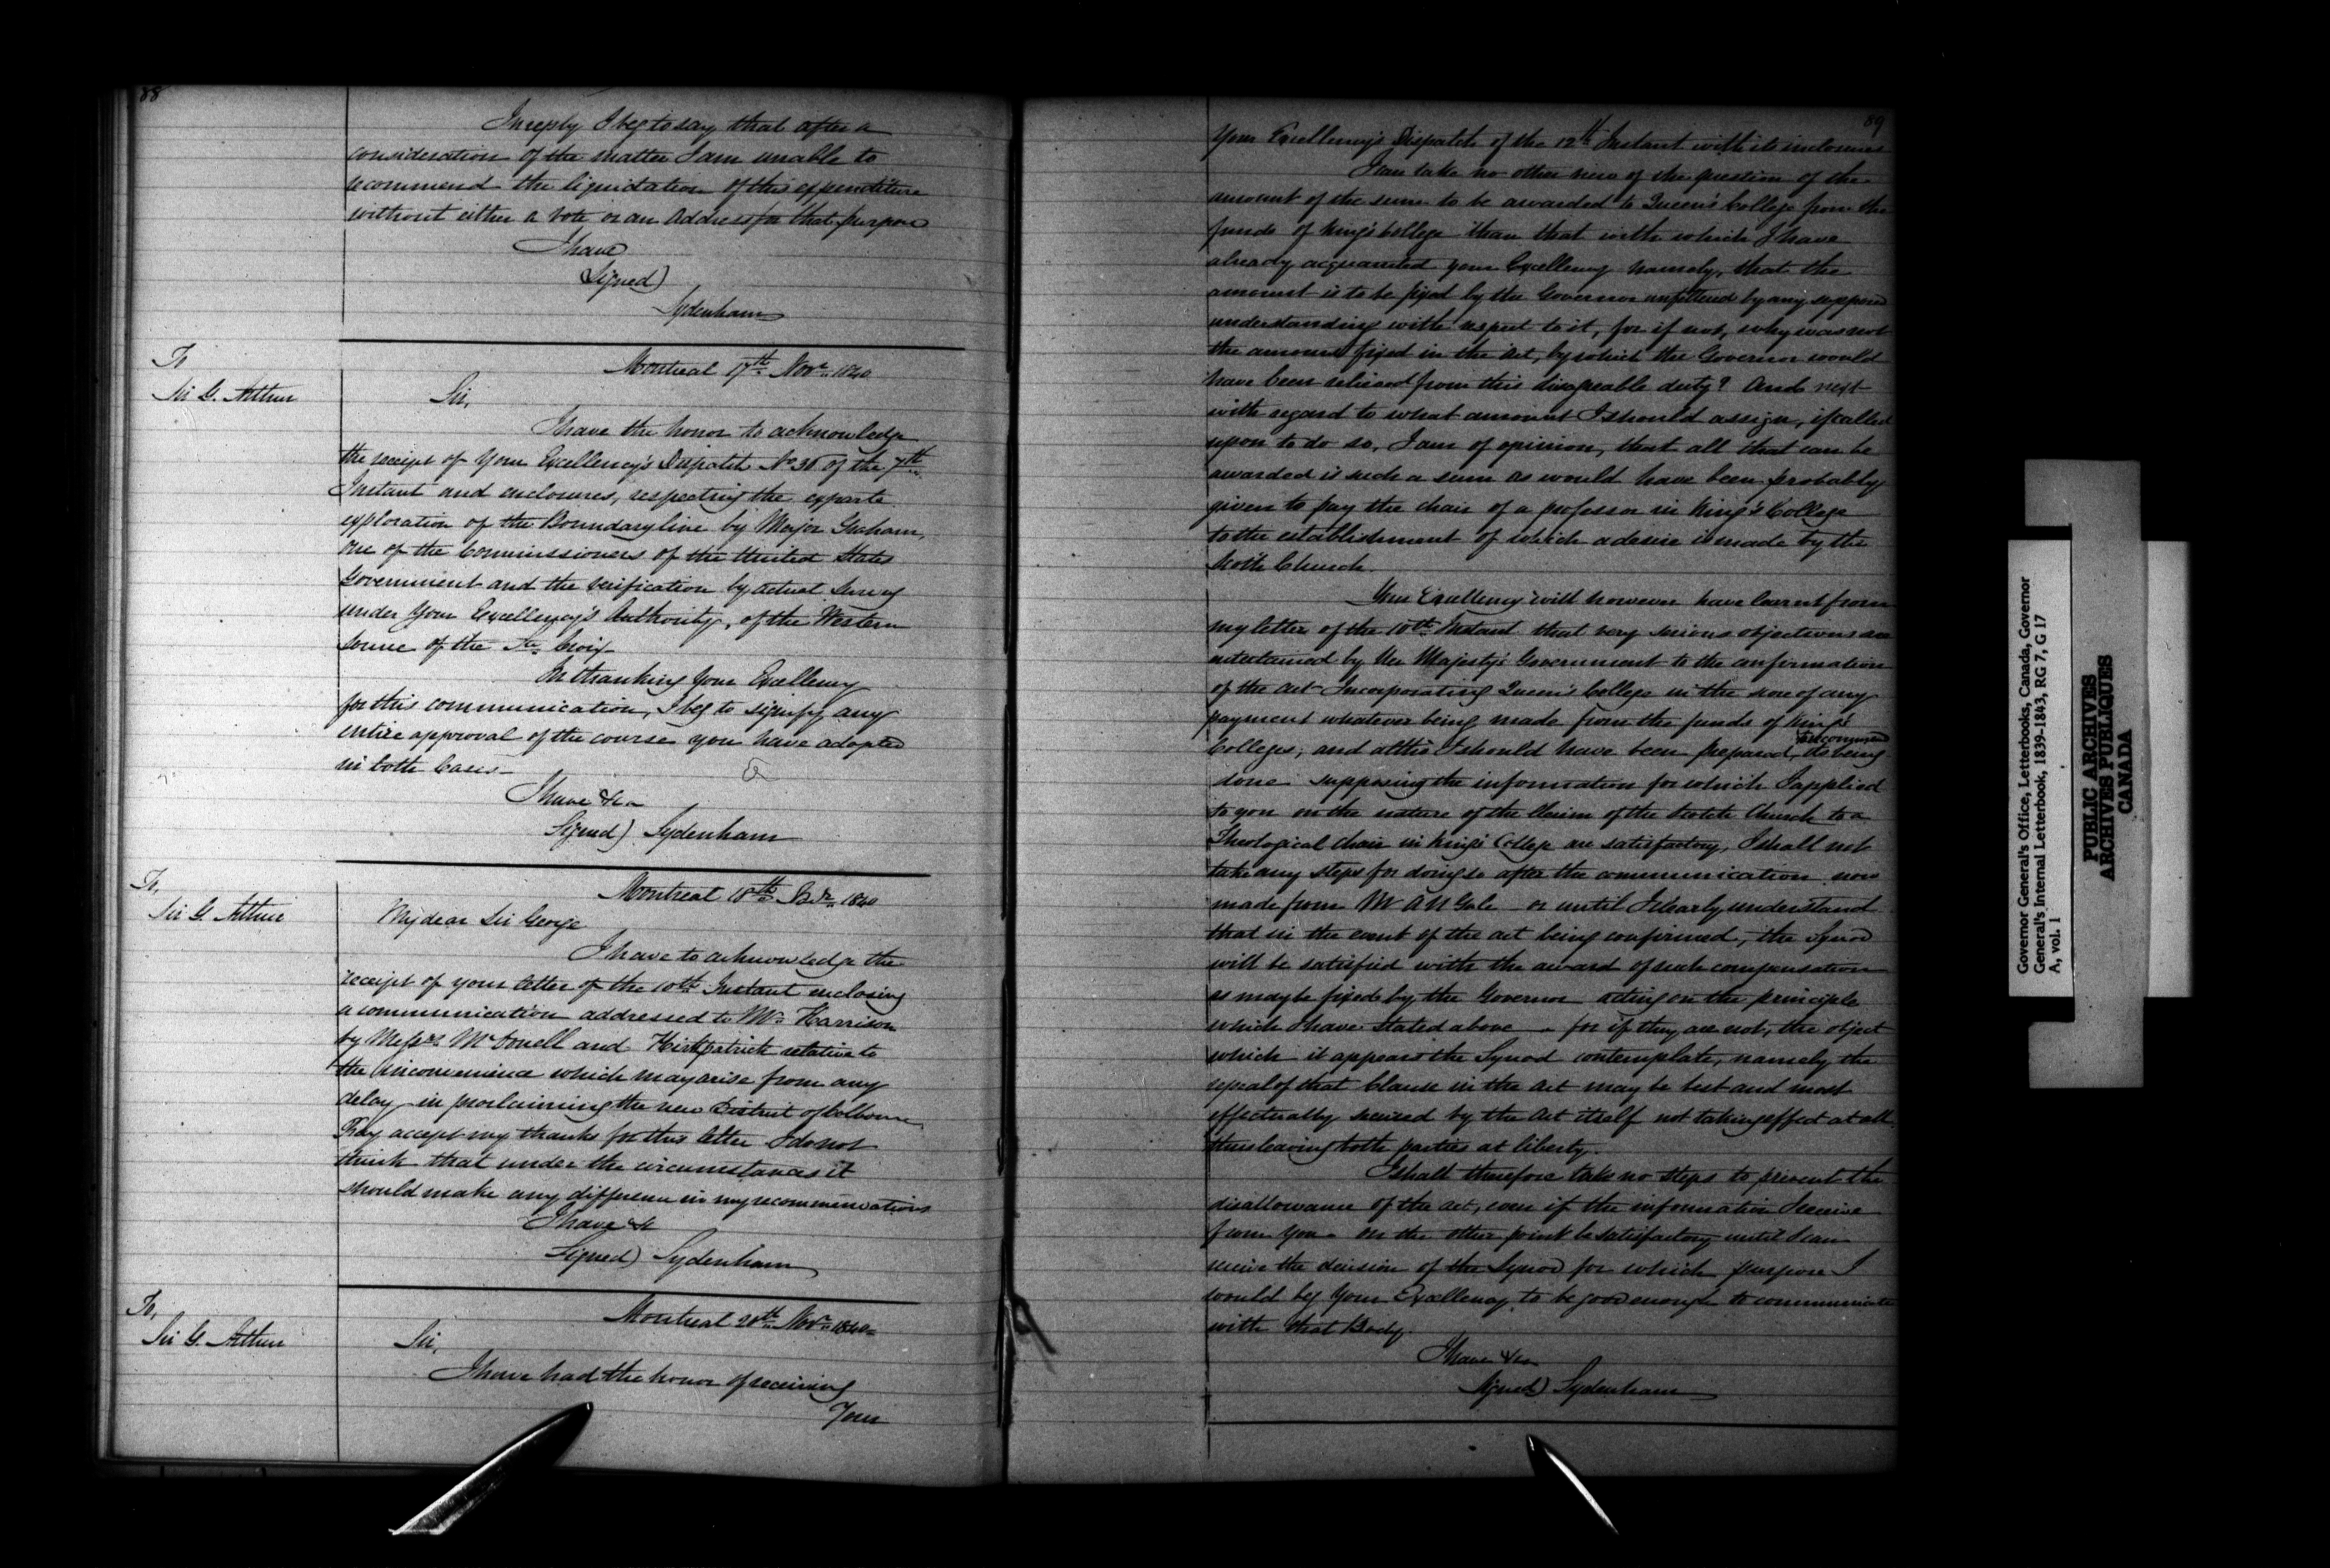 88
In reply I beg to say that after a
consideration of the matter I am unable to
recommend the liquidation of this expenditure
without either a vote or an Address for that purpose
I have
Signed)
Sydenham
To
Sir G. Arthur
Montreal 17th Novr. 1840
Sir,
I have the honor to acknowledge
the receipt of Your Excellency's Dispatch No 38 of the 7th
Instant and enclosures, respecting the exparte
exploration of the Boundary line by Major Graham,
one of the Commissioners of the United States
Government and the verification by actual Survey
under Your Excellency's Authority, of the Western
source of the Ste. Croix
In thanking Your Excellency
for this communication, I beg to signify any
entire approval of the course you have adopted
in both Cases
I have &ca
Signed) Sydenham
To,
Sir G. Arthur
Montreal 18th 1840
My dear Sir George
I have to acknowledge the
receipt of your letter of the 10th Instant enclosing
a communication addressed to Mr. Harrison
by Messrs McDonell and Kirkpatrick relative to
the inconvenience which may arise from any
delay in proclaiming the new District of Colborne
Pray accept my thanks for this letter I do not
think that under the circumstances it
should make any difference in my recommendations
I have &c
Signed) Sydenham
To,
Sir G. Arthur
Montreal 20th Novr. 1840
Sir,
I have had the honor of receiving
Your
89
Your Excellency's Dispatch of the 12th Instant with its inclosures
I can take no other view of the question of the
amount of the sum to be awarded to Queen's College from the
funds of King's College than that with which I have
already acquainted your Excellency namely, that the
amount is to be fixed by the Governor unfettered by any supposed
understanding with respect to it, for if not, why was not
the amount fixed in the Act, by which the Governor would
have been relieved from this disagreeable duty? And next
with regard to what amount I should assign, if called
upon to do so, I am of opinion, that all that can be
awarded is such a sum as would have been probably
given to pay the chair of a professor in King's College
to the establishment of which a desire is made by the
Scotch Church.
Your Excellency will however have learnt from
my letter of the 10th Instant that very serious objections are
entertained by Her Majesty's Government to the confirmation
of the Act Incorporating Queen's College in the score of any
payment whatever being made from the funds of King's
to recommend
Colleges; and altho' I should have been prepared, its being
done supposing the information for which I applied
to you on the nature of the Claim of the Scotch Church to a
Theological Chair in King's College are satisfactory, I shall not
take any steps for doing so after the communication now
made from Mr Gale or until I clearly understand
that in the event of the act being confirmed, the Synod
will be satisfied with the award of such compensation
as may be fixed by the Governor acting on the principle
which I have stated above - for if they are not, the object
which it appears the Synod contemplate, namely the
repeal of that Clause in the Act may be best and most
effectually secured by the Act itself not taking effect at all
thus leaving both parties at liberty.
I shall therefore take no steps to prevent the
disallowance of the Act, even if the information I receive
from you on the other point be satisfactory until I can
receive the decision of the Synod for which purpose I
would beg Your Excellency to be good enough to communicate
with that Body.
I have &ca
Signed) Sydenham
Governor General's Office, Letterbooks, Canada, Governor
General's Internal Letterbook, 1839-1843, RG 7, G 17
A, vol. 1
PUBLIC ARCHIVES
ARCHIVES PUBLIQUES
CANADA